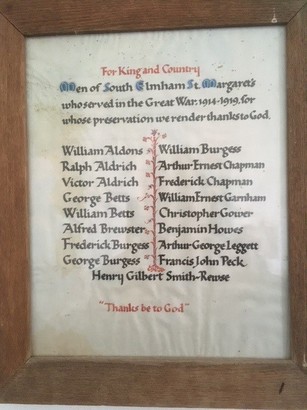 For King and Country
Men of South Elmham St. Margaret's
who served in the Great War. 1914-1919. for
whose preservation we render thanks to God.
William Aldons
Ralph Aldrich
Victor Aldrich
George Betts
William Betts
Alfred Brewster
Frederick Burgess
George Burgess
William Burgess
Arthur Ernest Chapman
Frederick Chapman
William Ernest Garnham
Christopher Gower
Benjamin Howes
Arthur George Leggett
Francis John Peck
Henry Gilbert Smith-Rewse
"Thanks be to God"